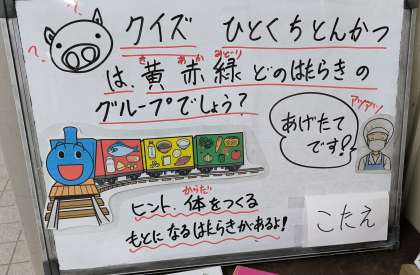 ? ?
クイズ ひとくちとんかつ
は、黄赤緑どのはたらきの
き あか みどーり
グループでしょう?
アツアツ
あげたて
です!
ヒント、体をつくる
からだ
もとになるはたらきがあるよ!
こたえ